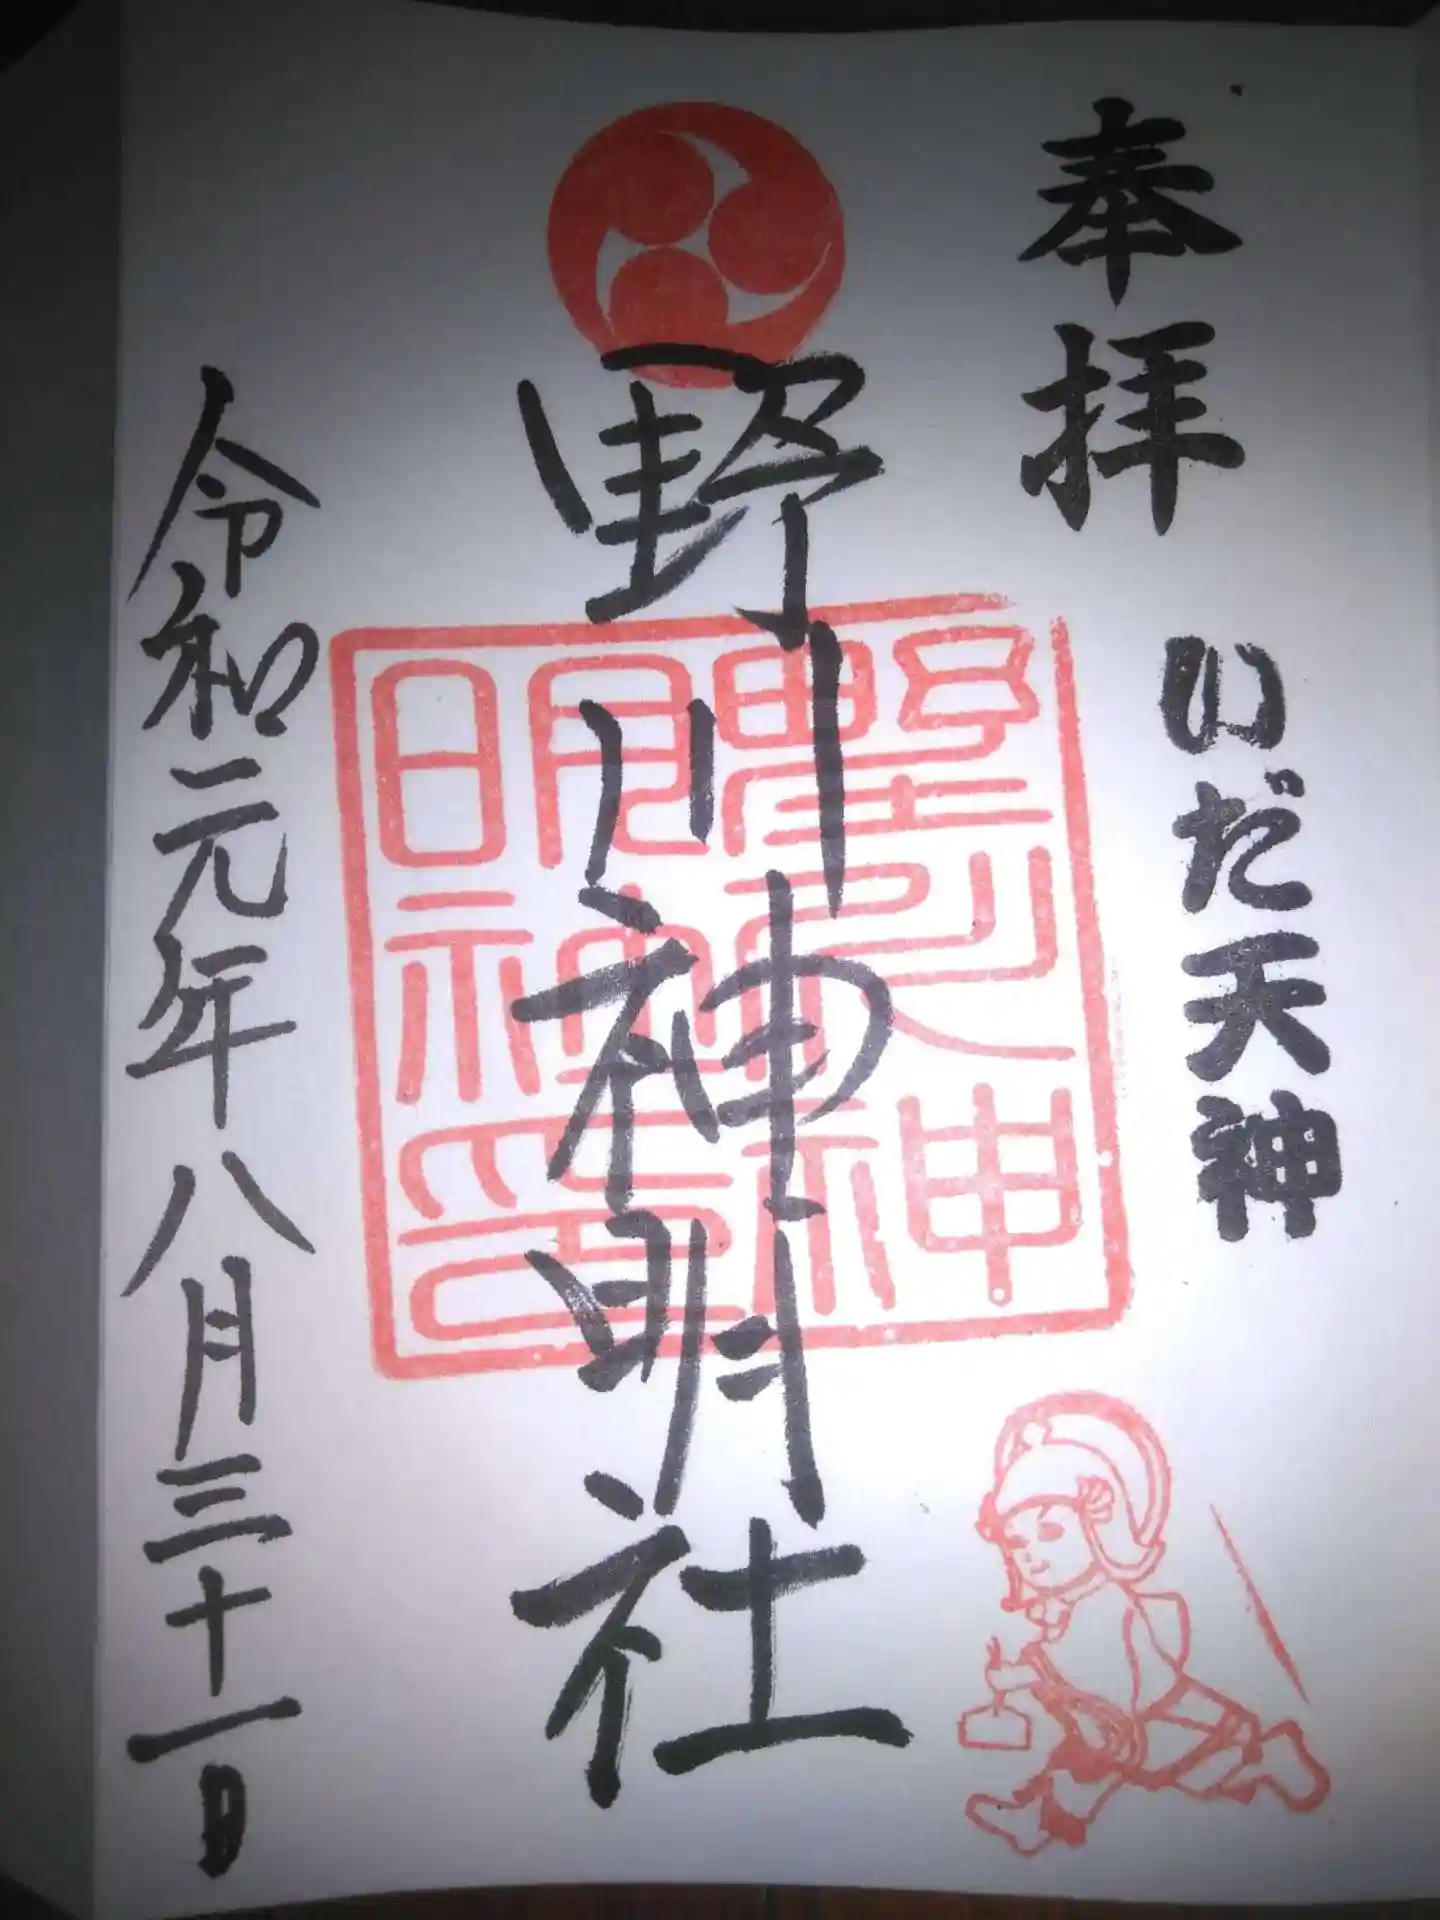 奉拝
いだ天神
野川神明社
野川神明神社印
令和元年八月三十一日